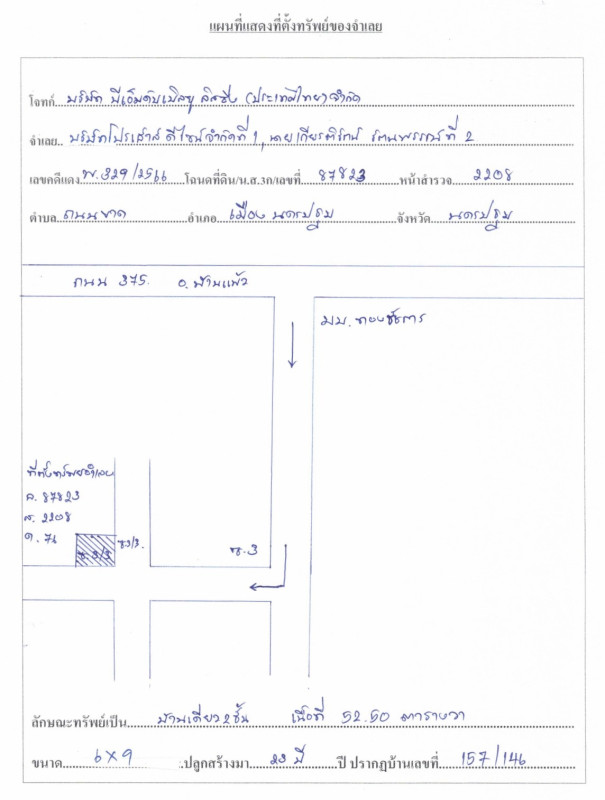 แผนที่แสดงที่ตั้งทรัพย์ของจำเลย
โจทก์ บริษัท บีเอ็มดับเบิลยู ลิสซิ่ง (ประเทศไทย) จำกัด
จำเลย บริษัทโปรเฮ้าส์ ดีไซน์ จำกัดที่ 1, นายเกียรติรัตน์ รัตนพรรณที่ 2
เลขคดีแดง พ.329/2566 โฉนดที่ดิน/น.ส.3ก/เลขที่ 87823 หน้าสำรวจ 2208
ตำบล ถนนขาด อำเภอ เมืองนครปฐม จังหวัด นครปฐม
ถนน 375. อ.บ้านแพ้ว
มบ.
ที่ตั้งทรัพย์จำเลย
ฉ. 87823
ส. 2208
ด. 74
ซ.3/3
ซ.3/3.
ซ.3
ลักษณะทรัพย์เป็น บ้านเดี่ยว 2 ชั้น เนื้อที่ 52.50 ตารางวา
ขนาด 6x9 ปลูกสร้างมา 23 ปี ปี ปรากฏบ้านเลขที่ 157/146